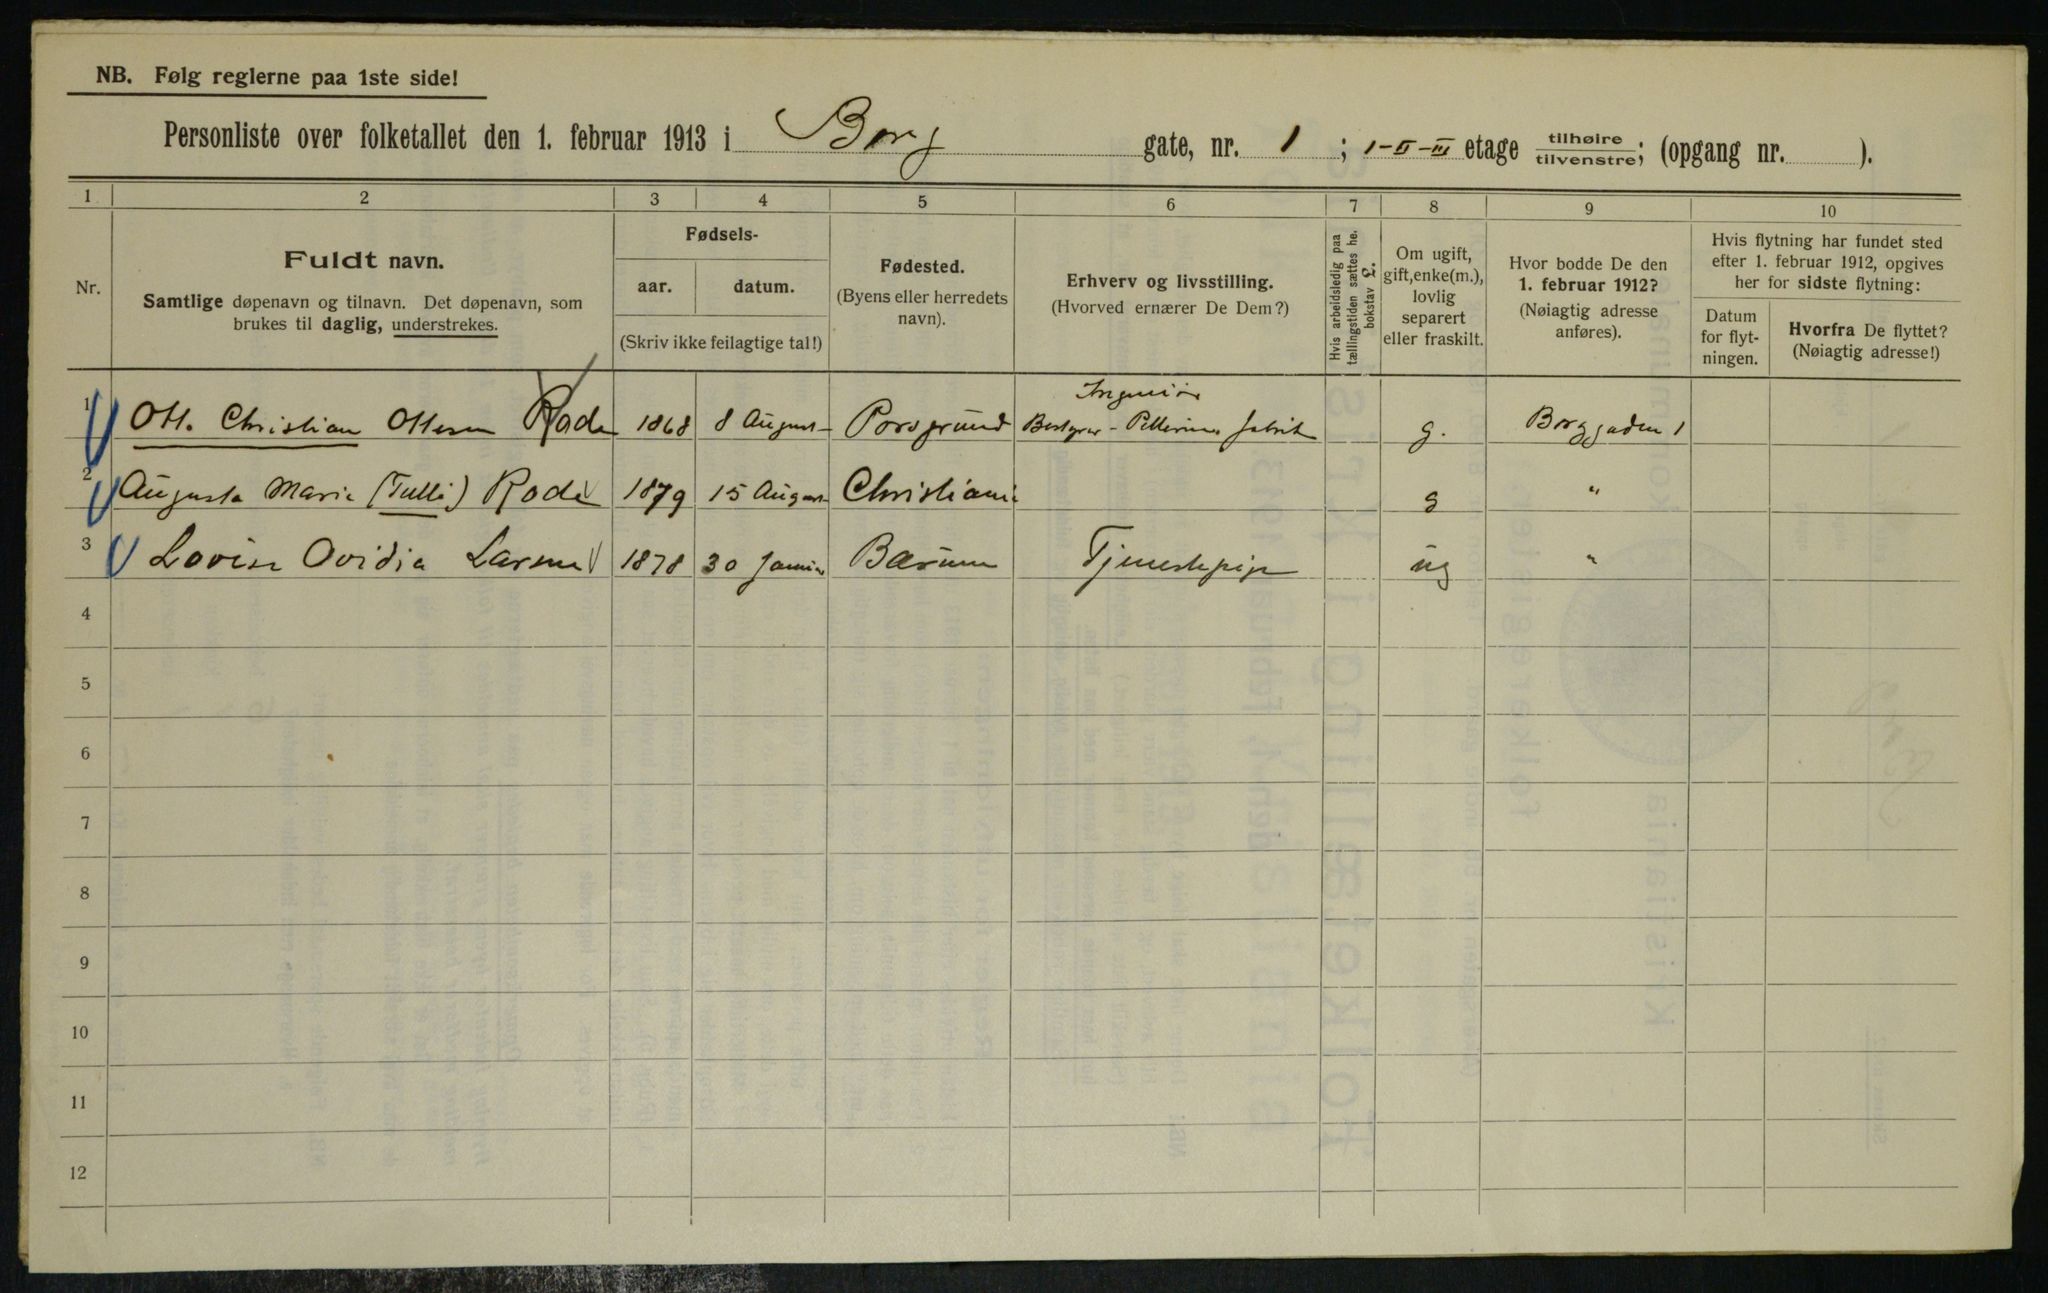 NB. Følg reglerne paa 1ste side!
Personliste over folketallet den 1. februar 1913 i Borg gate, nr. 1; I-II-III etage tilhøire tilvenstre; (opgang nr. ).
1 2 3 4 5 6 7 8 9 10
Nr.
Fuldt navn.
Samtlige døpenavn og tilnavn. Det døpenavn, som
brukes til daglig, understrekes.
Fødsels-
aar. datum.
(Skriv ikke feilagtige tal!)
Fødested.
(Byens eller herredets
navn).
Erhverv og livsstilling.
(Hvorved ernærer De Dem?)
Hvis arbeidsledig paa
tællingstiden sættes he.
bokstav L.
Om ugift,
gift, enke(m.),
lovlig
separert
eller fraskilt.
Hvor bodde De den
1. februar 1912?
(Nøiagtig adresse
anføres).
Hvis flytning har fundet sted
efter 1. februar 1912, opgives
her for sidste flytning:
Datum
for flyt-
ningen.
Hvorfra De flyttet?
(Nøiagtig adresse!)
Ingeniør
1 Otto Christian Ottesen Rode 1868 8 August Porsgrund Bestyrer - Pellerins fabrik g. Borggaden 1
2 Augusta Marie (Tulli) Rode 1879 15 August Christiania g "
3 Lovise Ovidia Larsen 1878 30 Bærum Tjenestepige ug "
4
5
6
7
8
9
10
11
12